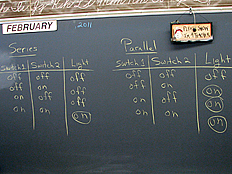 FEBRUARY 2011
Series
Switch 1 Switch 2 Light
off off off
off on off
on off off
on on on
Parallel
Switch 1 Switch 2 Light
off off off
off on on
on off on
on on on